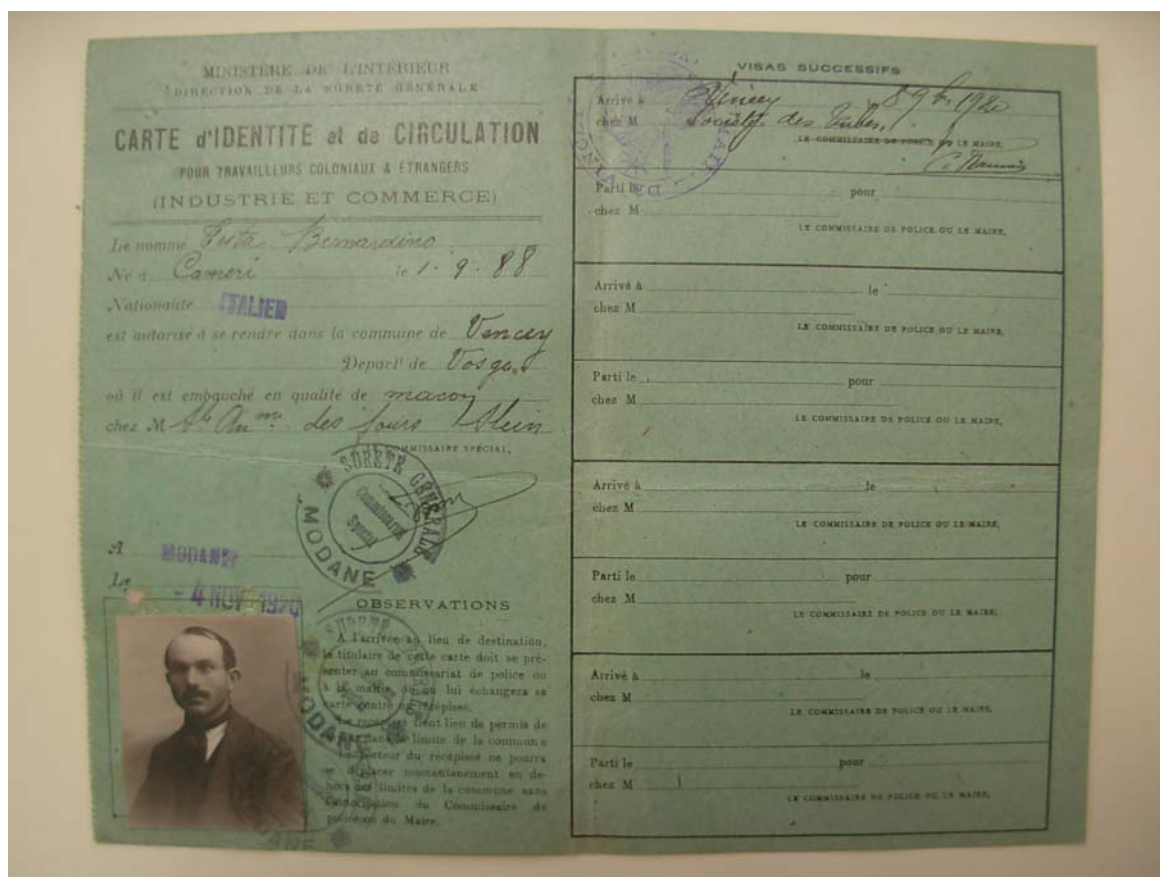 MINISTÈRE DE L'INTÉRIEUR
DIRECTION DE LA SURETÉ GÉNÉRALE
CARTE d'IDENTITÉ et de CIRCULATION
POUR TRAVAILLEURS COLONIAUX & ÉTRANGERS
(INDUSTRIE ET COMMERCE)
Le nommé Festa Bernardino
Né à Cameri le 1. 9. 88
Nationalité ITALIEN
est autorisé à se rendre dans la commune de Vincey
Départt de Vosges
où il est embauché en qualité de maçon
chez M Sté Anme des fours Stein
COMMISSAIRE SPÉCIAL,
SURETÉ GÉNÉRALE
Commissariat
Spécial
MODANE
A MODANE
Le - 4 NOV 1920
OBSERVATIONS
A l'arrivée au lieu de destination,
le titulaire de cette carte doit se pré-
senter au commissariat de police ou
à la mairie, où on lui échangera sa
carte contre un récépissé.
Le récépissé tient lieu de permis de
dans la limite de la commune
Le porteur du récépissé ne pourra
se déplacer momentanément en de-
hors des limites de la commune sans
l'autorisation du Commissaire de
police ou du Maire.
MODANE
VISAS SUCCESSIFS
Arrivé à Vincey 8 9bre 1920
chez M Société des Tubes
LE COMMISSAIRE DE POLICE OU LE MAIRE,
Parti le pour
chez M
LE COMMISSAIRE DE POLICE OU LE MAIRE,
Arrivé à le
chez M
LE COMMISSAIRE DE POLICE OU LE MAIRE,
Parti le pour
chez M
LE COMMISSAIRE DE POLICE OU LE MAIRE,
Arrivé à le
chez M
LE COMMISSAIRE DE POLICE OU LE MAIRE,
Parti le pour
chez M
LE COMMISSAIRE DE POLICE OU LE MAIRE,
Arrivé à le
chez M
LE COMMISSAIRE DE POLICE OU LE MAIRE,
Parti le pour
chez M
LE COMMISSAIRE DE POLICE OU LE MAIRE,